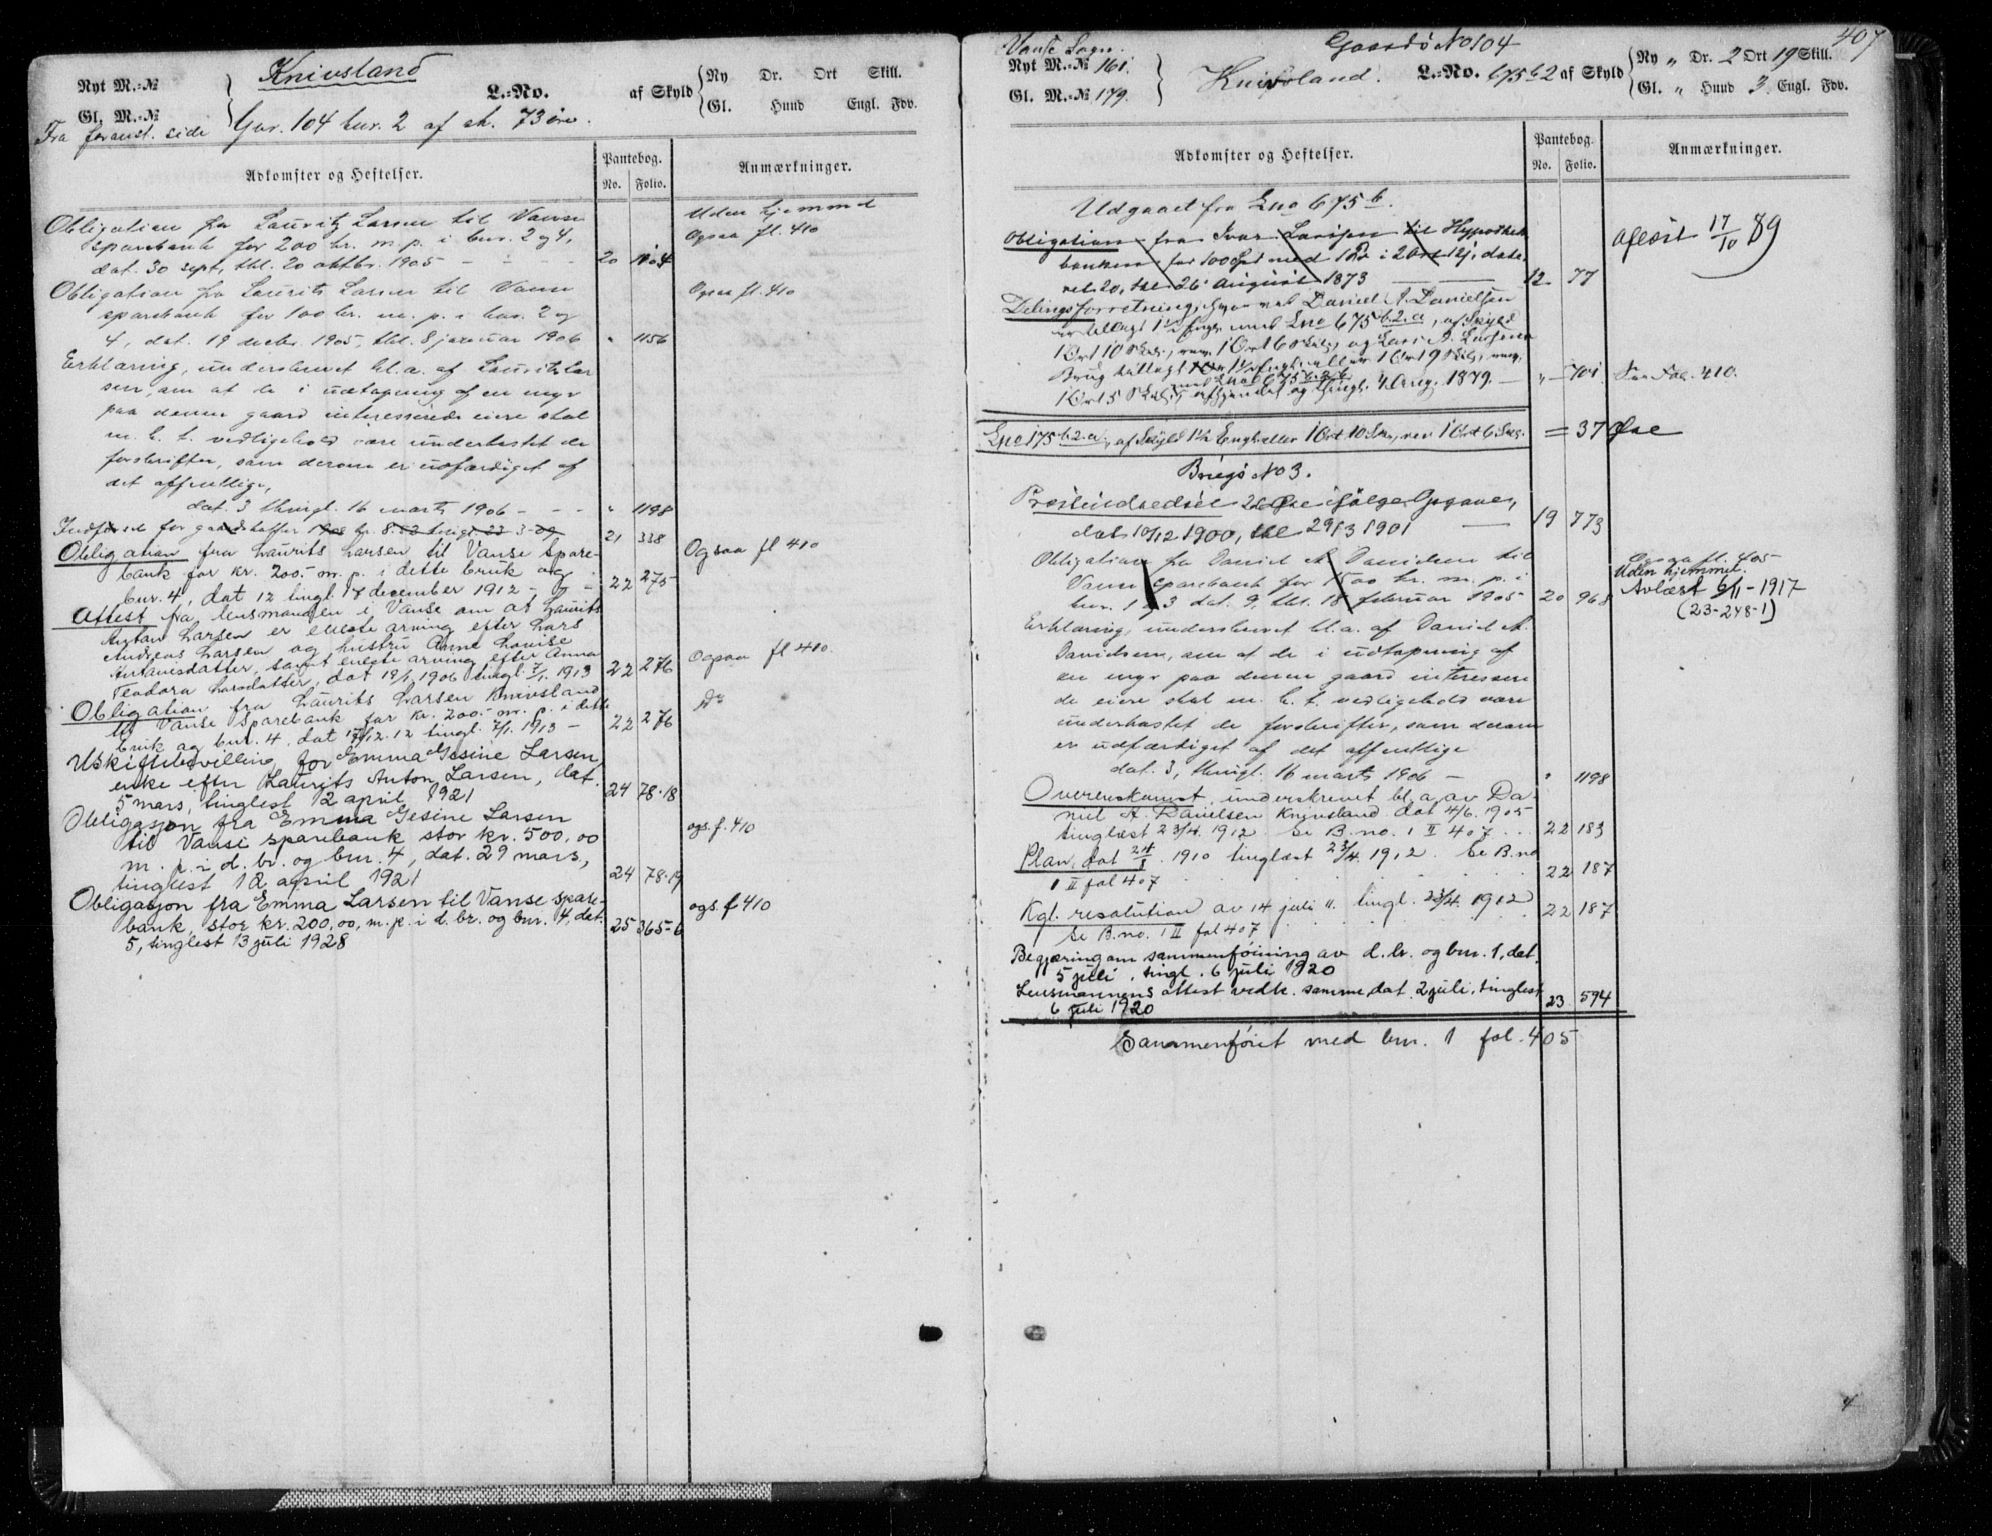 Knivsland
Nyt M.-№ L.-No. af Skyld Ny Dr. Ort Skill.
Gl. M.-№ Gl. Hund Engl. Fdv.
Fra foranst. side Gnr. 104 bnr. 2 af sk. 73 øre.
Adkomster og Heftelser. Pantebog. No. Folio. Anmærkninger.
Obligation fra Lauritz Larsen til Vanse Uden hjemmel
sparebank for 200 kr. m. p. i bnr. 2 og 4, Ogsaa fl. 410
dat. 30 sept, thl. 20 oktbr. 1905 - - - 20 1104
Obligation fra Laurits Larsen til Vanse Ogsaa fl. 410
sparebank for 100 kr. m. p. i bnr. 2 og
4, dat. 19 decbr. 1905, thl. 8 januar 1906 " 1156
Erklæring, underskrevet bl. a. af Laurits Lar
sen, om at de i udtapning af en myr
paa denne gaard interesserede eiere skal
m. h. t. vedligehold være underkastet de
forskrifter, som derom er udfærdiget af
det offentlige,
dat. 3 thingl. 16 marts 1906 - - - " 1198
for gaardskatter kr. 8.52 tingl. 22 3-09 21 338
Obligation fra Laurits Larsen til Vanse Spare- Ogsaa fl 410
bank for kr. 200.- m. p. i dette bruk og
bnr. 4, dat 12 tingl. 17 desember 1912 - 22 275
Attest fra lensmanden i Vanse om at Laurits
Anton Larsen er eneste arving efter Lars
Andreas Larsen og hustru Anne Lovise
Antonisdatter, samt eneste arving efter Anna Ogsaa fl 410
Teodora Larsdatter, dat 12/1 1906 tingl. 7/1 1913 22 276
Obligation fra Laurits Larsen Knivsland
til Vanse Sparebank for kr. 200.- m. p. i dette
bruk og bnr. 4, dat 17/12.12 tingl. 7/1 1913 - 22 276
Uskiftebevilling for Emma Gesine Larsen,
enke efter Laurits Anton Larsen, dat.
5 mars, tinglest 12 april 1921 24 78-18
Obligasjon fra Emma Gesine Larsen ogs. f. 410
til Vanse sparebank stor kr. 500,00
m. p. i d. br. og bnr. 4, dat. 29 mars,
tinglest 12 april 1921 24 78-19
Obligasjon fra Emma Larsen til Vanse spare- ogs. f. 410
bank, stor kr. 200,00, m. p. i d. br. og bnr. 4, dat.
5, tinglest 13 juli 1928 25 365-6
407
Vanse Sogn. Gaards No 104
Nyt M.-№ 161. Knivsland. L.-No. 675 b 2 af Skyld Ny " Dr. 2 Ort 19 Skill.
Gl. M.-№ 179. Gl. " Hund 3 Engl. Fdv.
Adkomster og Heftelser. Pantebog. No. Folio. Anmærkninger.
Udgaaet fra Lno 675 b.
Obligation fra Ivar Larsen til Hypothek
banken for 100 Spd med 1 Pr. i 2 Ort 12 s, date
ret 20, thl. 26 August 1873 12 77 aflæst 17/10 89
Delingsforretning, hvorved Daniel A. Danielsen
er tillagt 1½ Engl. med Lno 675 b.2.a, af Skyld
1 Ort 10 Skill., rev. 1 Ort 6 Skill, og Lars A. Larsens
Brug tillagt 1½ Engl. eller 1 Ort 9 Skill, rev.
1 Ort 5 Skill, med Lno 675 b.2.b, afhjemlet og thingl. 4 Aug. 1879. " 701 Se Fol. 410.
Lno 175 b.2.a, af Skyld 1½ Engl. eller 1 Ort 10 Skill, rev. 1 Ort 6 Skill. = 37 Øre
Brugs No 3.
dat 10/12 1900, thl 29/3 1901 19 773
Obligation fra Daniel A. Danielsen til Ogsaa fl. 405
Vanse Sparebank for 1500 kr. m. p. i Uden hjemmel.
bnr. 1 og 3 dat. 9. thl. 18 februar 1905 20 968 Avlæst 6/11 - 1917
(23-248-1)
Erklæring, underskrevet bl. a. af Daniel A.
Danielsen, om at de i udtapning af
en myr paa denne gaard interessere
de eiere skal m. h. t. vedligehold være
underkastet de forskrifter, som derom
er udfærdiget af det offentlige
dat. 3, thingl. 16 marts 1906 - " 1198
Overenskomst underskrevet bl. a. av Da-
niel A. Danielsen Knivsland dat 4/6. 1905
tinglæst 23/4. 1912. Se B. no. 1 II 407 ... 22 183
Plan, dat 24/8 1910 tinglæst 23/4. 1912. Se B. no
1 II fol 407 22 187
Kgl. resolution av 14 juli 11. tingl. 23/4. 1912 22 187
Se B. no. 1 II fol 407
Begjæring om sammenføining av d. br. og bnr. 1, dat.
5 juli, tingl. 6 juli 1920
Lensmannens attest vedk. samme, dat. 2 juli, tinglest
6 juli 1920 23 594
Sammenføiet med bnr. 1 fol. 405